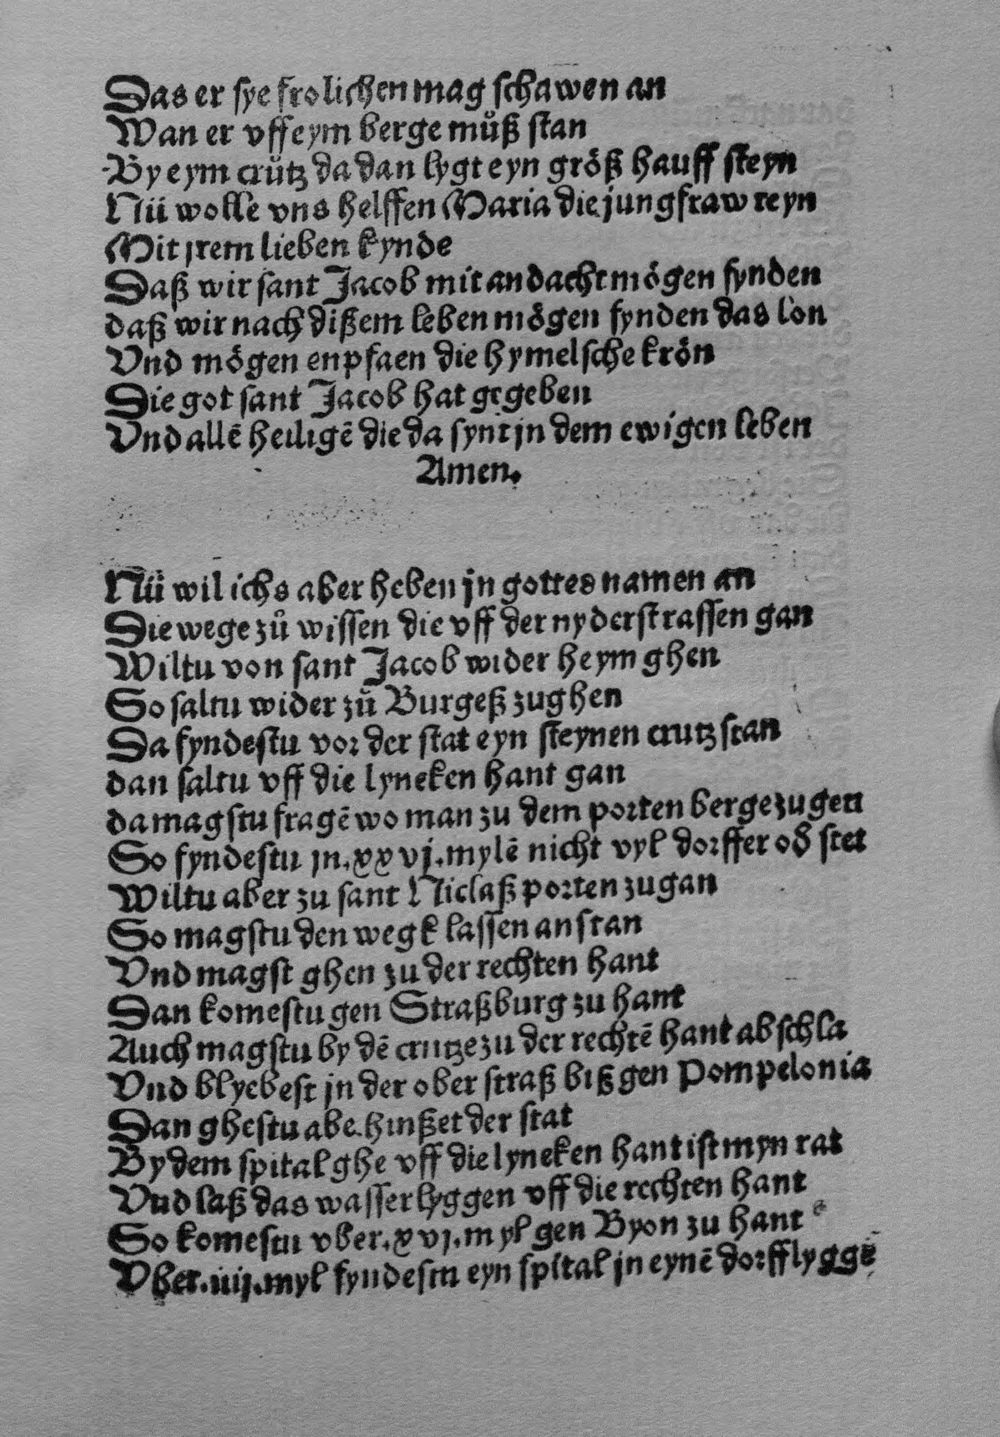 Das er sye frolichen mag schawen an
Wan er vff eym berge můß stan
By eym crütz da dan lygt eyn größ hauff steyn
Nü wolle vns helffen Maria die jungfraw reyn
Mit jrem lieben kynde
Daß wir sant Jacob mit andacht mögen fynden
daß wir nach dißem leben mögen fynden das lon
Vnd mögen enpfaen die hymelsche krön
Die got sant Jacob hat gegeben
Vnd allē heiligē die da synt jn dem ewigen leben
Amen.
Nü wil ichs aber heben jn gottes namen an
Die wege zů wissen die vff der nyderstrassen gan
Wiltu von sant Jacob wider heym ghen
So saltu wider zů Burgeß zughen
Da fyndestu vor der stat eyn steynen crutz stan
dan saltu vff die lyneken hant gan
da magstu fragē wo man zu dem porten berge zu gett
So fyndestu jn .xxvj. mylē nicht vyl dorffer od̕ stet
Wiltu aber zu sant Niclaß porten zugan
So magstu den wegk lassen anstan
Vnd magst ghen zu der rechten hant
Dan komestu gen Straßburg zu hant
Auch magstu by dē crutze zu der rechtē hant abschla
Vnd blyebest jn der ober straß biß gen Pompelonia
Dan ghestu abe hinßet der stat
By dem spital ghe vff die lyneken hant ist myn rat
Vnd laß das wasser lyggen vff die rechten hant
So komestu vber .xvj. myl gen Byon zu hant
Vber .iiij. myl fyndestu eyn spital jn eynē dorff lyggē